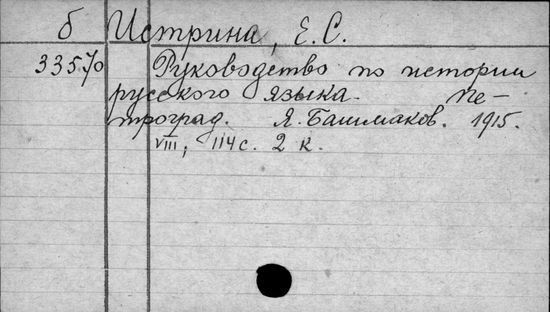 б Истрина, Е.С.
33570 Руководство по истории
русского языка. Пе-
троград. Я. Башмаков. 1915.
VIII, 114 с. 2 к.